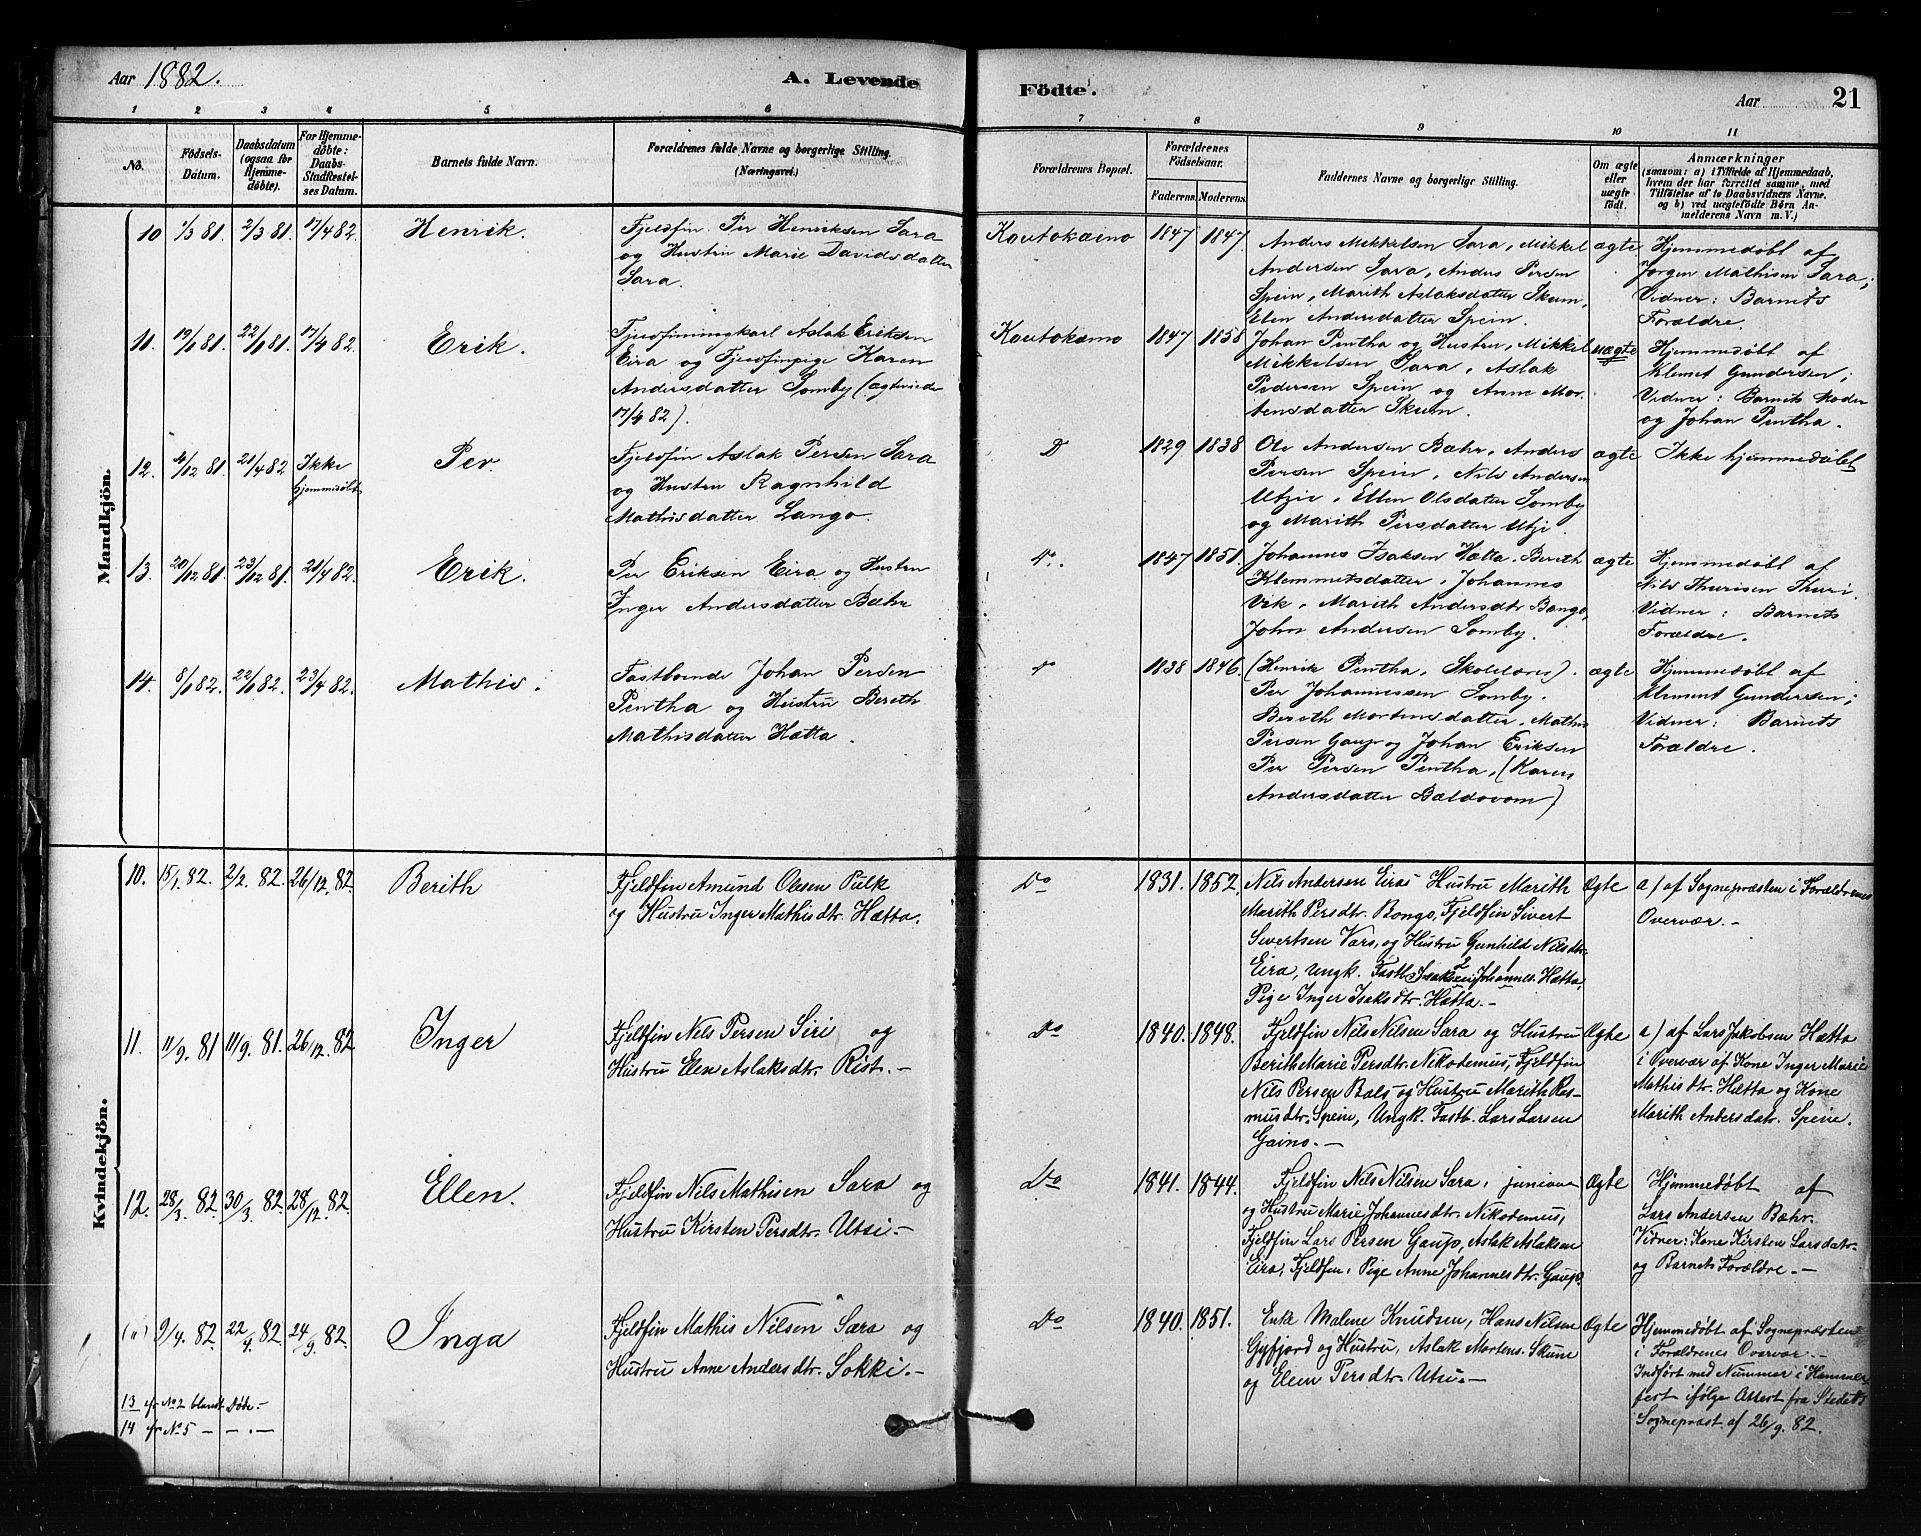 Aar 1882.
A. Levende
Födte.
Aar
21
1
2
3
4
5.
6
7
8
9
10
11
No.
Födsels-
Datum.
Daabsdatum
(ogsaa for
Hjemme-
döbte).
For Hjemme-
döbte:
Daabs-
Stadfæstel-
ses Datum.
Barnets fulde Navn.
Forældrenes fulde Navne og borgerlige Stilling.
(Næringsvei.)
Forældrenes Bopæl.
Forældrenes
Födselsaar.
Faderens.
Moderens.
Faddernes Navne og borgerlige Stilling.
Om ægte
eller
uægte
födt.
Anmærkninger
(saasom: a) i Tilfælde af Hjemmedaab,
hvem der har forrettet samme, med
Tilföielse af to Daabsvidners Navne.
og b) ved uægtefödte Börn An-
melderens Navn m. V.)
Mandkjön.
10 1/3 81. 2/3 81. 17/4 82. Henrik.
Fjeldfin Per Henriksen Sara
og Hustru Marie Davidsdatter
Sara.
Koutokæino 1847 1847.
Anders Mikkelsen Sara, Mikkel
Andersen Sara, Anders Persen
Spein, Marith Aslaksdatter Skum,
Elen Andersdatter Spein.
ægte
Hjemmedøbt af
Jørgen Mathisen Sara;
Vidner: Barnets
Forældre.
11. 19/1 81. 22/1 81. 17/4 82. Erik.
Fjeldfinungkarl Aslak Eriksen
Eira og Fjeldfinpige Karen
Andersdatter Somby (ægteviede
17/4 82).
Koutokæino 1847 1858
Johan Pentha og Hustru, Mikkel
Mikkelsen Sara, Aslak
Pedersen Spein og Anne Mor-
tensdatter Skum.
uægte
Hjemmedøbt af
Klemet Gundersen;
Vidner: Barnets Moder
og Johan Pentha.
12. 4/12 81. 21/4 82 Ikke
hjemmedøbt
Per.
Fjeldfin Aslak Persen Sara
og Hustru Ragnhild
Mathisdatter Lango.
D 1829 1838
Ole Andersen Bæhr, Anders
Persen Spein, Nils Andersen
Utzie, Ellen Olsdatter Somby
og Marith Persdatter Utzi
ægte
Ikke hjemmedøbt
13. 20/12 81. 23/12 81. 21/4 82. Erik.
Per Eriksen Eira og Hustru
Inger Andersdatter Bæhr
Do. 1847 1851.
Johannes Isaksen Hætta. Bereth
Klemmetsdatter, Johannes
Vik, Marith Andersdtr Bongo,
John Andersen Somby.
ægte
Hjemmedøbt af
Nils Thurisen Thuri.
Vidner: Barnets
Forældre.
14. 8/1 82. 22/1 82. 23/4 82. Mathis.
Fastboende Johan Persen
Pentha og Hustru Bereth
Mathisdatter Hætta.
Do 1838 1846.
(Henrik Pentha, Skolelærer).
Per Johannessen Somby.
Bereth Mortensdatter. Mathis
Persen Gaup og Johan Eriksen
Per Persen Pentha, (Karen
Andersdatter Bældovom)
ægte
Hjemmedøbt af
Klement Gundersen;
Vidner: Barnets
Forældre.
Kvindekjön.
10. 15/1. 82. 2/2. 82. 26/12. 82. Berith
Fjeldfin Amund Olesen Pulk
og Hustru Inger Mathisdtr. Hætta.
Do 1831. 1852.
Nils Andersen Eiras Hustru Marith
Marith Persdtr. Bongo, Fjeldfin Sivert
Sivertsen Vars, og Hustru Gunhild Nilsdtr.
Eira, Ungk. Fastb. Isaksen Johannes Hætta,
Pige Inger Isaksdtr. Hætta.—
Ægte
a) af Sognepræsten i Forældrenes
Overvær.—
11. 11/9. 81 11/9. 81. 26/12. 82 Inger
Fjeldfin Nils Persen Siri og
Hustru Elen Aslaksdtr. Rist.—
Do 1840. 1848.
Fjeldfin Nils Nilsen Sara og Hustru
Berith Marie Persdtr. Nikodemus, Fjeldfin
Nils Persen Bals og Hustru Marith Ras-
musdtr. Spein, Ungk. Fastb. Lars Larsen
Gaino.—
Ægte
a) af Lars Jakobsen Hætta
i Overvær af Kone Inger Marie
Mathisdtr. Hætta og Kone
Marith Andersdatr. Speine.
12. 28/3. 82. 30/3. 82. 28/12. 82. Ellen.
Fjeldfin Nils Mathisen Sara og
Hustru Kirsten Persdtr. Utsi.—
Do 1841. 1844.
Fjeldfin Nils Nilsen Sara, junior
og Hustru Marie Johannesdtr. Nikodemus,
Fjeldfin Lars Persen Gaup, Aslak Aslaksen
Eira, Fjeldfin, Pige Anne Johannesdtr. Gaup.
Ægte
Hjemmedøbt af
Lars Andersen Bæhr.
Vidner: Kone Kirsten Larsdatr.
og Barnets Forældre.—
(") 9/4. 82. 22/4. 82 24/9. 82. Inga
Fjeldfin Mathis Nilsen Sara og
Hustru Anne Andersdtr. Sokki.—
Do 1840. 1851.
Enke Malene Knudsen, Hans Nilsen
Gyfjord og Hustru, Aslak Mortens. Skum
og Elen Persdtr. Utsi.—
Ægte
Hjemmedøbt af Sognepræsten
i Forældrenes Overvær.—
Indført med Nummer i Hammer-
fest ifølge Attest fra Stedets
Sognepræst af 26/9. 82.
13 cfr No 2 blandt Døde.—
14 cfr No 5 — — . —